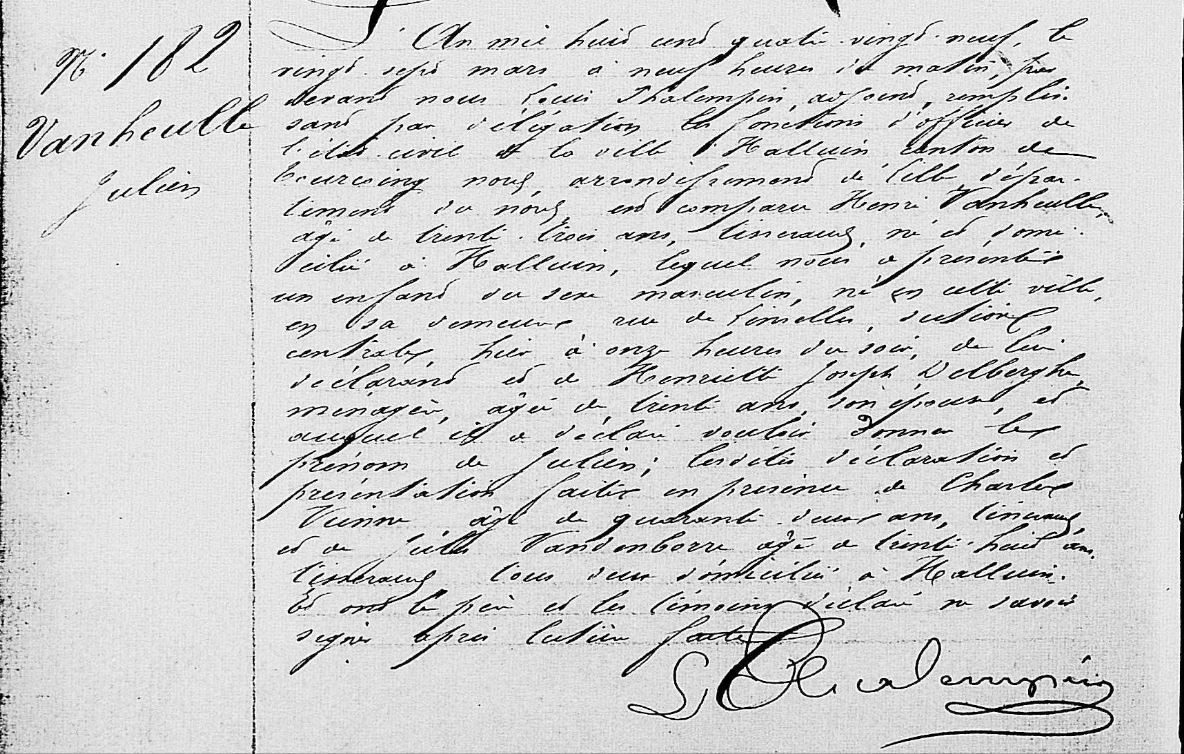 N° 182
Vanheulle
Julien
L'An mil huit cent quatre vingt neuf, le
vingt sept mars à neuf heures du matin, par
devant nous Louis Thalempin, adjoint, remplis
sant par délégation les fonctions d'officier de
l'état civil de la ville d'Halluin, canton de
Tourcoing nord, arrondissement de Lille dépar-
tement du nord, est comparu Henri Vanheulle,
âgé de trente trois ans, tisserand, né et domi-
cilié à Halluin, lequel nous a présenté
un enfant du sexe masculin, né en cette ville,
en sa demeure, rue de Linselles, section
centrale, hier à onze heures du soir, de lui
déclarant et de Henriette Joseph Delberghe,
ménagère, âgée de trente ans, son épouse, et
auquel il a déclaré vouloir donner le
prénom de Julien; lesdites déclaration et
présentation faites en présence de Charles
Vienne, âgé de quarante deux ans, tisserand,
et de Jules Vandenborre âgé de trente-huit ans,
tisserand, tous deux domiciliés à Halluin.
Et ont le père et les témoins déclaré ne savoir
signer après lecture faite
L. Thalempin